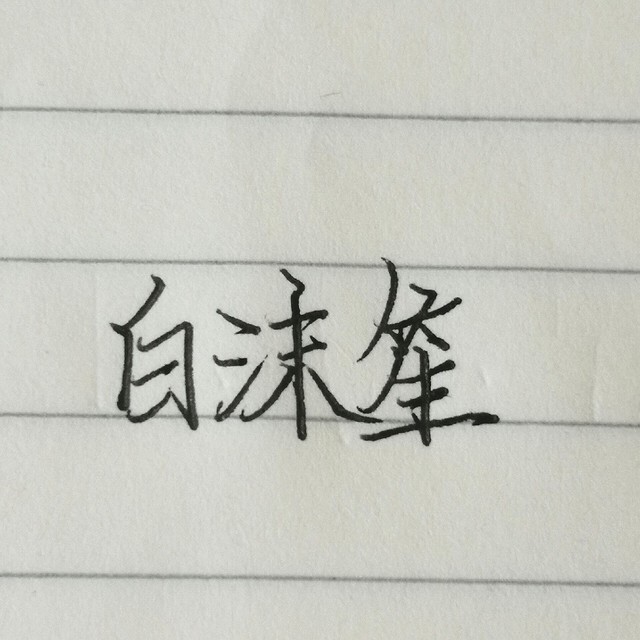 白沫笙